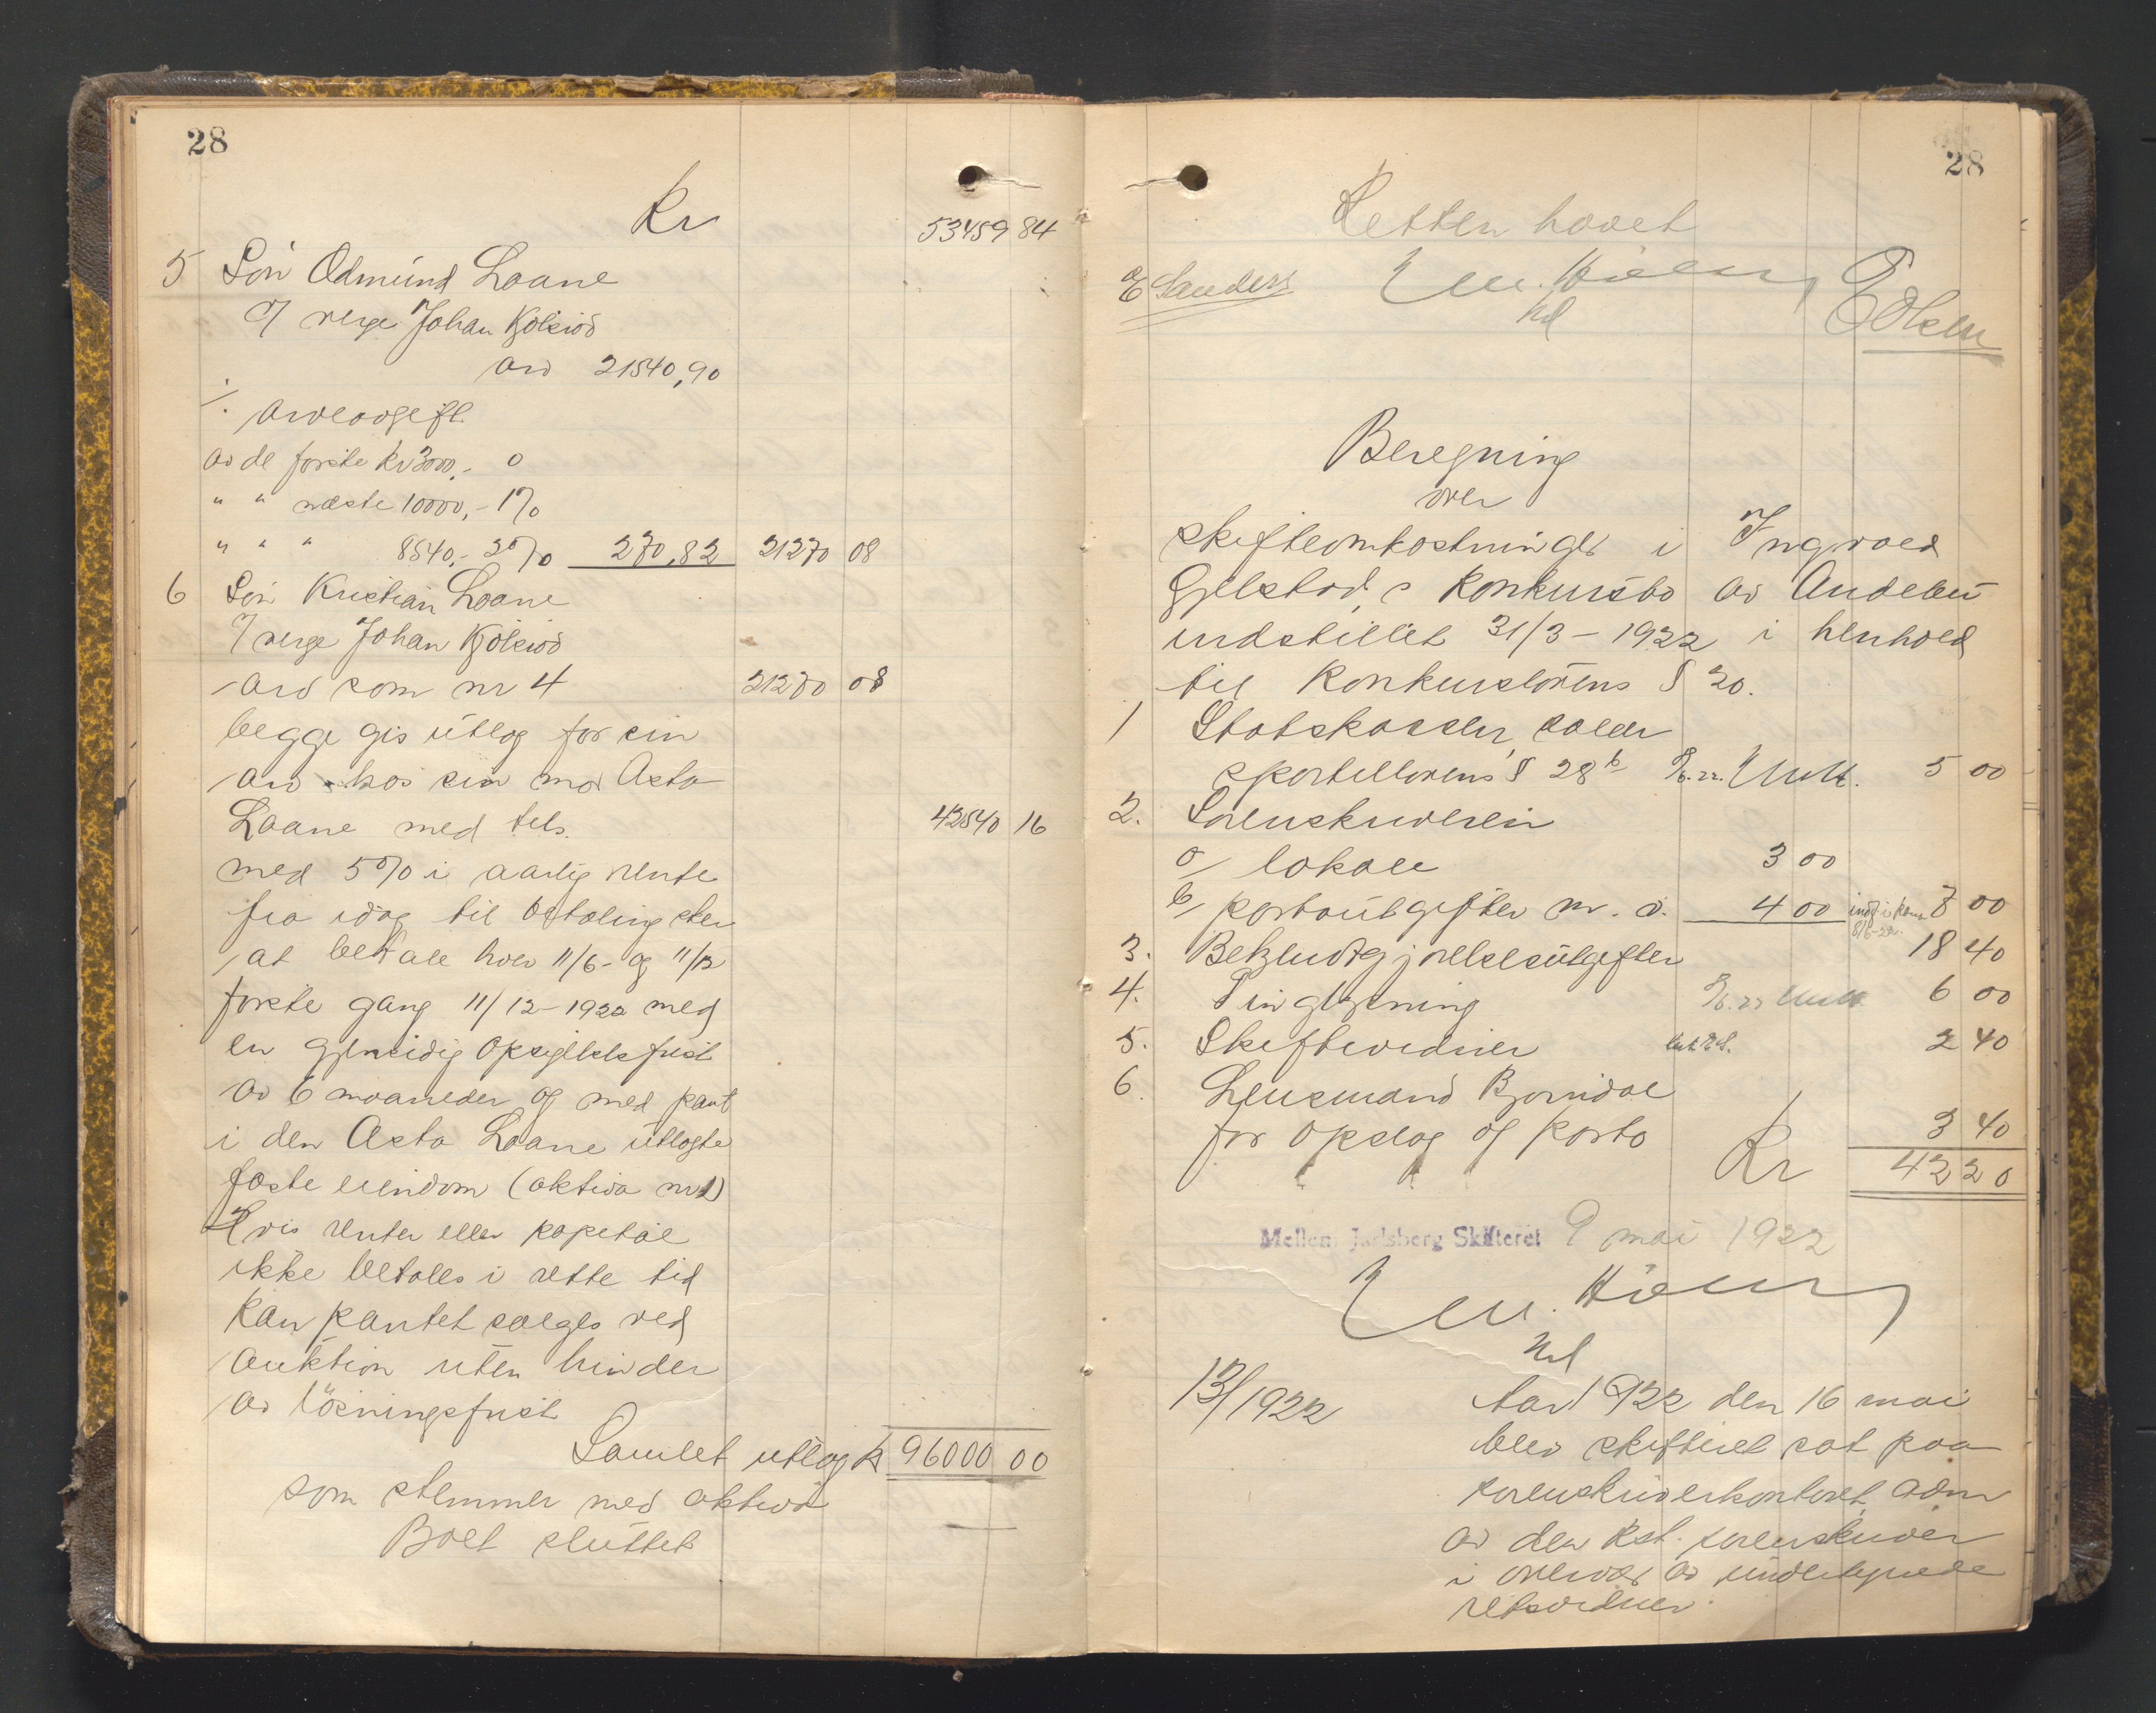 28
Kr
53459 84
5 Søn Odmund Loane
v/ verge Johan Kjølsrød
arv 21540,90
÷ arveavgift
av de første kr 3000,- 0
" " næste 10000,- 1%
" " " 8540,- 2% 270,82 21270 08
6 Søn Kristian Loane
v/ verge Johan Kjølsrød
arv som nr 4 21270 08
begge gis utlag for sin
arv hos sin mor Asta
Loane med tils. 42540 16
med 5% i aarlig rente
fra idag til betaling sker
at betale hver 11/6 - og 11/12
første gang 11/12 - 1922 med
en gjensidig opsigelsesfrist
av 6 maaneder og med pant
i den Asta Loane utlagte
faste eiendom (aktiva nr 1)
Hvis renter eller kapital
ikke betales i rette tid
kan pantet sælges ved
auktion uten hinder
av løsningsfrist
Samlet utlag kr 96000 00
som stemmer med aktiva
Boet sluttet
28
Retten hævet
E Sanders E Olsen
Beregning
over
skifteomkostninger i Ingvald
Gjelstad's konkursbo av Andebu
indstillet 31/3 - 1922 i henhold
til konkurslovens § 20.
1 Statskassen, salær
sportellovens § 28 b 5 00
2. Sorenskriveren
a/ lokale 3 00
b/ portoutgifter m. v. 4 00 7 00
3. Bekjendtgjørelsesutgifter 18 40
4. Tinglysning 6 00
5. Skiftevidner 2 40
6. Lensmand Bjørndal
for opslag og porto 3 40
Kr 42 20
Mellem Jarlsberg Skifteret 9 mai 1922
13/1922 Aar 1922 den 16 mai
blev skifteret sat paa
sorenskriverkontoret, adm
av den kst. sorenskriver
i overvær av undertegnede
retsvidner.